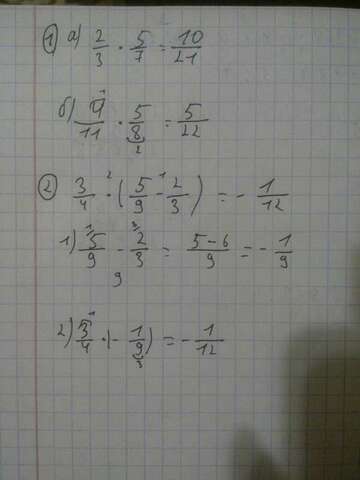 1) а) 2/3 · 5/7 = 10/21
б) 4/11 · 5/8 = 5/22
2) 3/4 · (5/9 - 2/3) = - 1/12
1) 5/9 - 2/3 = 5-6/9 = - 1/9
2) 3/4 · (- 1/9) = - 1/12